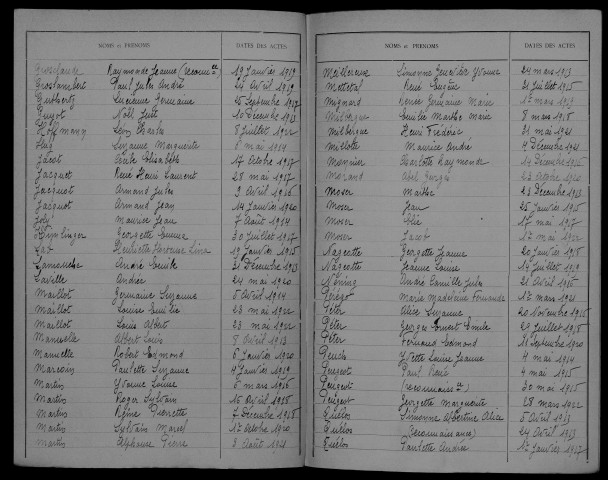 NOMS et PRÉNOMS DATES DES ACTES
Grosclaude Raymonde Jeanne (reconn ce) 19 Janvier 1919
Groslambert Paul Jules André 24 Avril 1919
Lucienne Germaine 25 Septembre 1917
Guyot Noël Just 10 Décembre 1913
Hoffmann Léon Charles 8 Juillet 1922
Hug Suzanne Marguerite 6 mai 1914
Jacot Cécile Elisabeth 17 Octobre 1917
Jacquet René Henri Laurent 28 mai 1917
Jacquot Armand Jules 9 Avril 1916
Jacquot Armand Jean 14 Janvier 1920
Joly Maurice Jean 7 Août 1914
Georgette Emma 30 Juillet 1917
Henriette 19 Janvier 1915
André Emile 31 Décembre 1913
Lavalle Andrée 24 mai 1920
Maillot Germaine Suzanne 5 Avril 1914
Maillot Louise Emilie 23 mai 1922
Maillot Louis Albert 23 mai 1922
Manuelle Albert Louis 8 Avril 1913
Manuelle Robert Edmond 6 Janvier 1920
Marcoin Paulette Suzanne 4 Janvier 1919
Martin Yvonne Louise 6 mars 1916
Martin Roger Sylvain 16 Avril 1918
Martin Régine Pierrette 7 Décembre 1918
Martin Sylvain Marcel 1er Octobre 1920
Martin Alphonse Pierre 9 Août 1921
NOMS et PRÉNOMS DATES DES ACTES
Simonne Geneviève Yvonne 24 mars 1913
Mettetal René Eugène 31 Juillet 1915
Mignard Renée Germaine Marie 1er mars 1919
Milberger Emilie Marthe Marie 8 mars 1918
Milbergue Henri Frédéric 31 mai 1921
Millotte Maurice André 4 Décembre 1921
Monnier Charlotte Raymonde 14 Décembre 1916
Morand Abel Georges 23 Octobre 1920
Moser Marthe 23 Décembre 1913
Moser Jean 25 Janvier 1915
Moser Elie 17 mai 1917
Moser Jacob 1er mai 1922
Nageotte Georgette Jeanne 20 Janvier 1918
Nageotte Jeanne Louise 14 Juillet 1919
André Camille Jules 21 Avril 1915
Marie Madeleine Fernande 1er mars 1921
Péter Alice Suzanne 20 Novembre 1915
Péter Georges Ernest Emile 29 Juillet 1918
Péter Fernand Edmond 11 Septembre 1920
Yvette Louise Jeanne 4 mai 1914
Peugeot Paul René 4 mai 1915
Peugeot (reconnaiss ce) 30 mai 1915
Peugeot Georgette Marguerite 28 mars 1922
Quélos Simonne Albertine Alice 5 Avril 1913
Quélos (Reconnaissance) 24 Avril 1913
Quélos Paulette Andrée 1er Janvier 1917